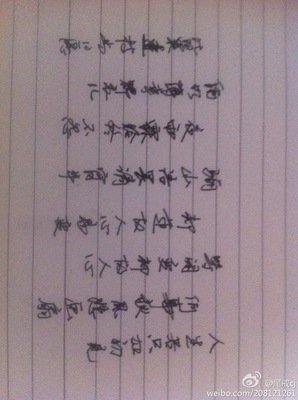 人生若只如初见
何事秋风悲画扇
等闲变却故人心
却道故人心易变
骊山语罢清宵半
夜雨霖铃终不怨
何如薄幸锦衣
比翼连枝当日愿
weibo.com/208121261